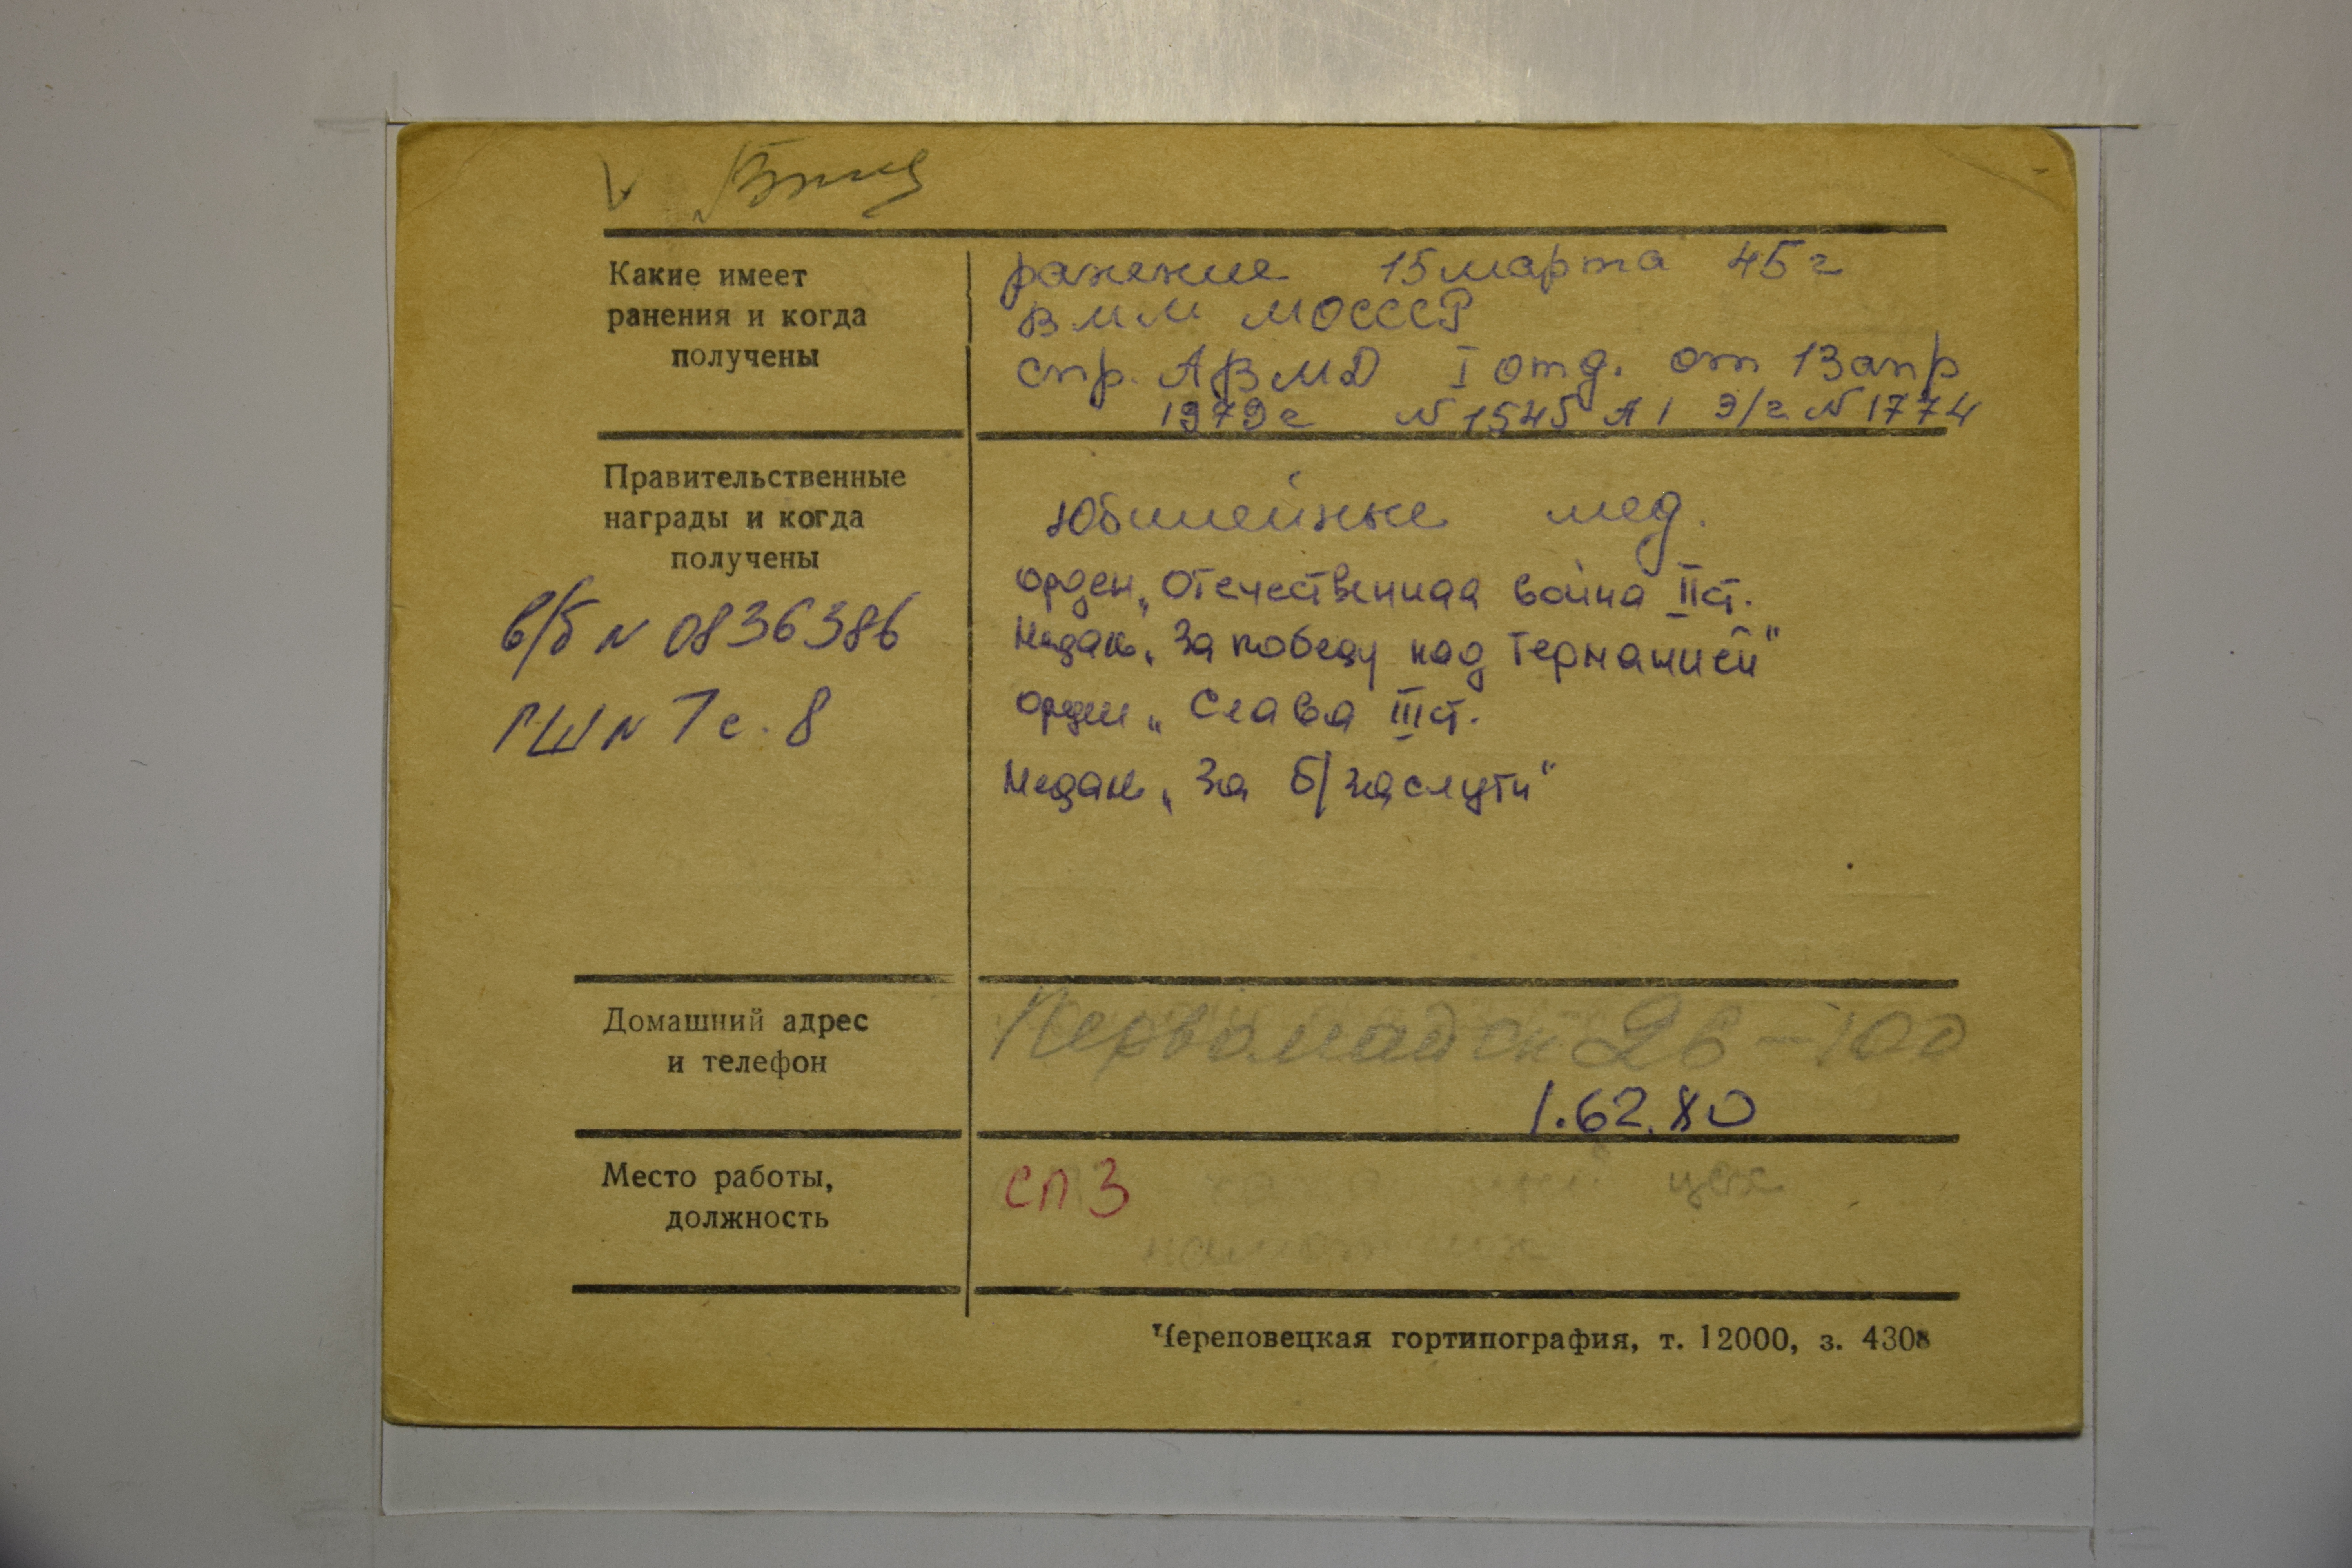 Какие имеет
ранения и когда
получены
ранение 15 марта 45 г
ВММ МОСССР
спр. АВМД I отд. от 13 апр
1979 г N 1545 А 1 Э/г N 1774
Правительственные
награды и когда
получены
в/б N 0836386
ГШ N 7 с. 8
Юбилейные мед.
Орден „Отечественная война II ст.
Медаль „За победу над Германией"
Орден „Слава III ст.
Медаль „За б/заслуги"
Домашний адрес
и телефон
Первомайск 26-100
1.62.80
Место работы,
должность
СПЗ цех
Череповецкая гортипография, т. 12000, з. 4308